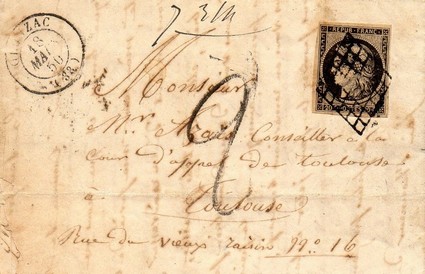 7 3m
ZAC
MAI
50
REPUB. FRANC.
2
Monsieur
Mr. Conseiller a la
cour d'appel de toulouse
à
Toulouse
Rue du vieux raisin No. 16